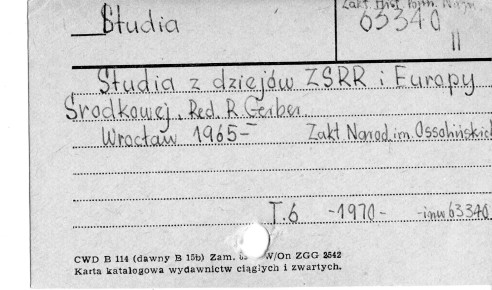 Studia
Zakł. Hist.
63340
II
Studia z dziejów ZSRR i Europy
Środkowej. Red. R. Gerber
Wrocław 1965-
Zakł Narod. im. Ossolińskich
T.6 -1970- -inw 63340
CWD B 114 (dawny B 15b) Zam. W/On ZGG 2542
Karta katalogowa wydawnictw ciągłych i zwartych.